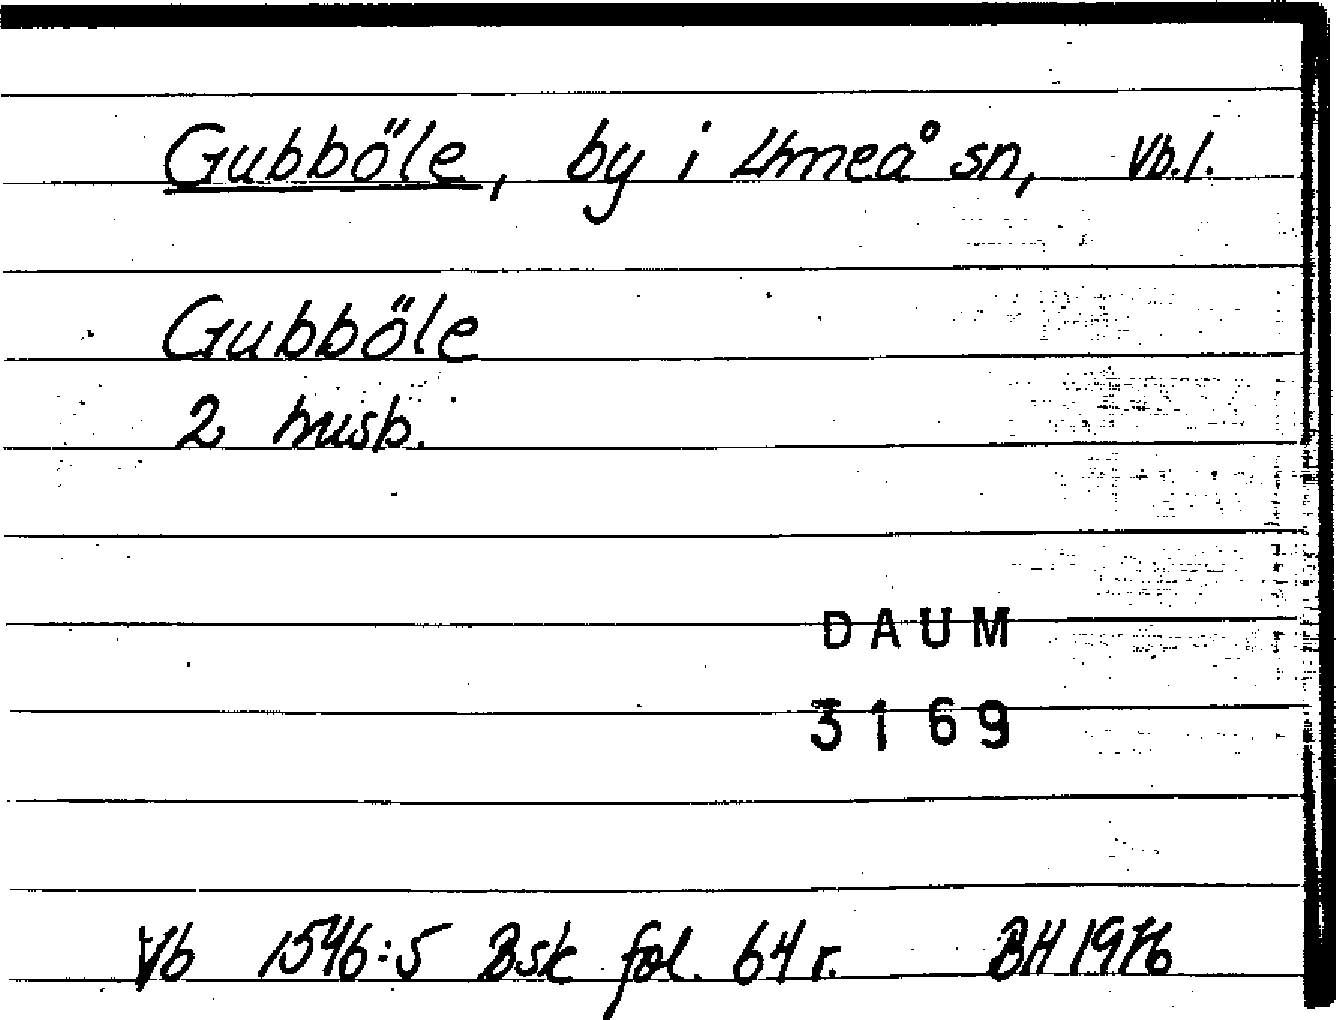 Gubböle, by i Umeå sn, Vb.l.
Gubböle
2 husb.
DAUM
3169
Vb 1546:5 Bsk fol. 64 r. BH 1976